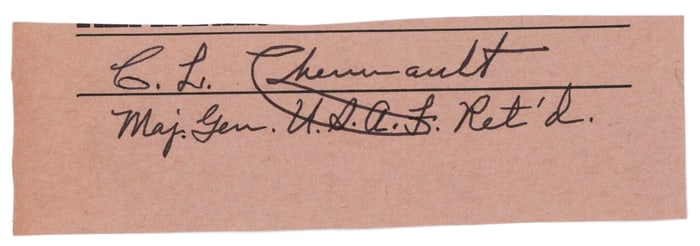 C. L. Chennault
Maj. Gen. U.S.A.F. Ret'd.